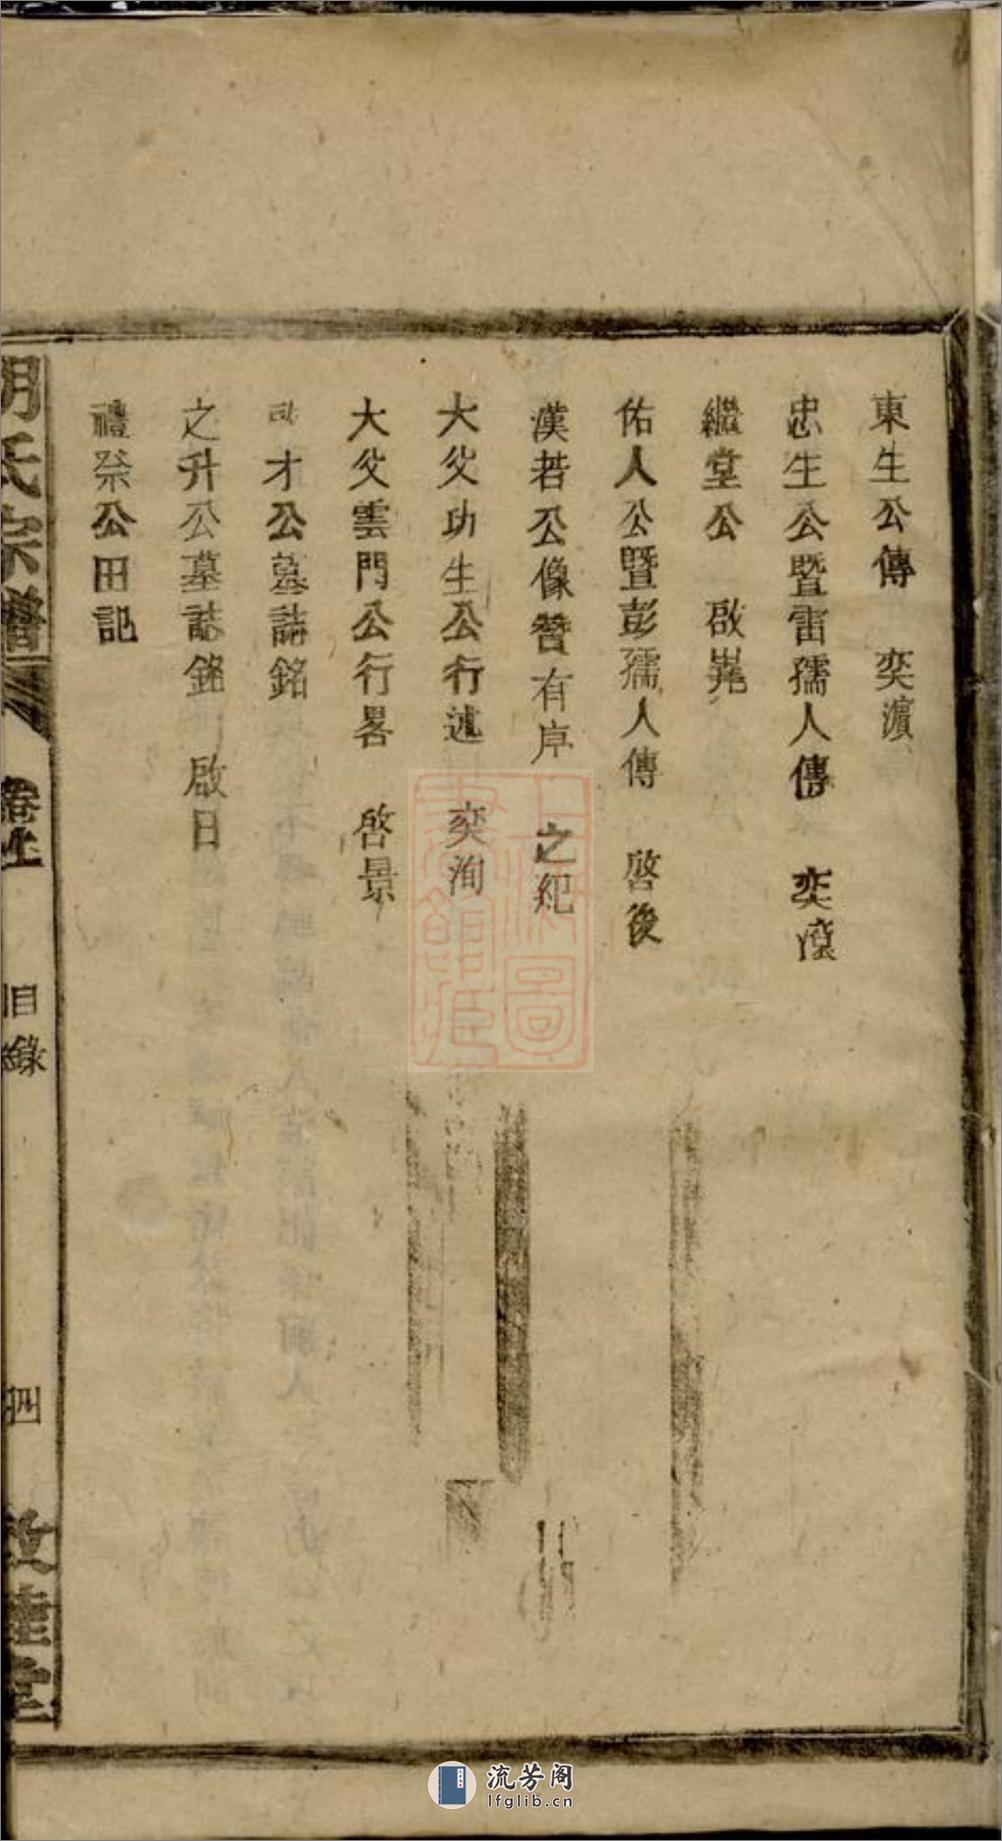 東生公傳 奕濵
忠生公暨雷孺人傳 奕瀍
繼堂公 啟嵬
佑人公暨彭孺人傳 啓後
漢若公像贊有序 之紀
大父功生公行述 奕洵
大父雲門公行畧 啓景
才公墓誌銘
之升公墓誌銘 啟日
禮祭公田記
胡氏宗譜
卷上
目錄
四
敦睦堂
上海圖書館藏
流芳阁
lfglib.cn